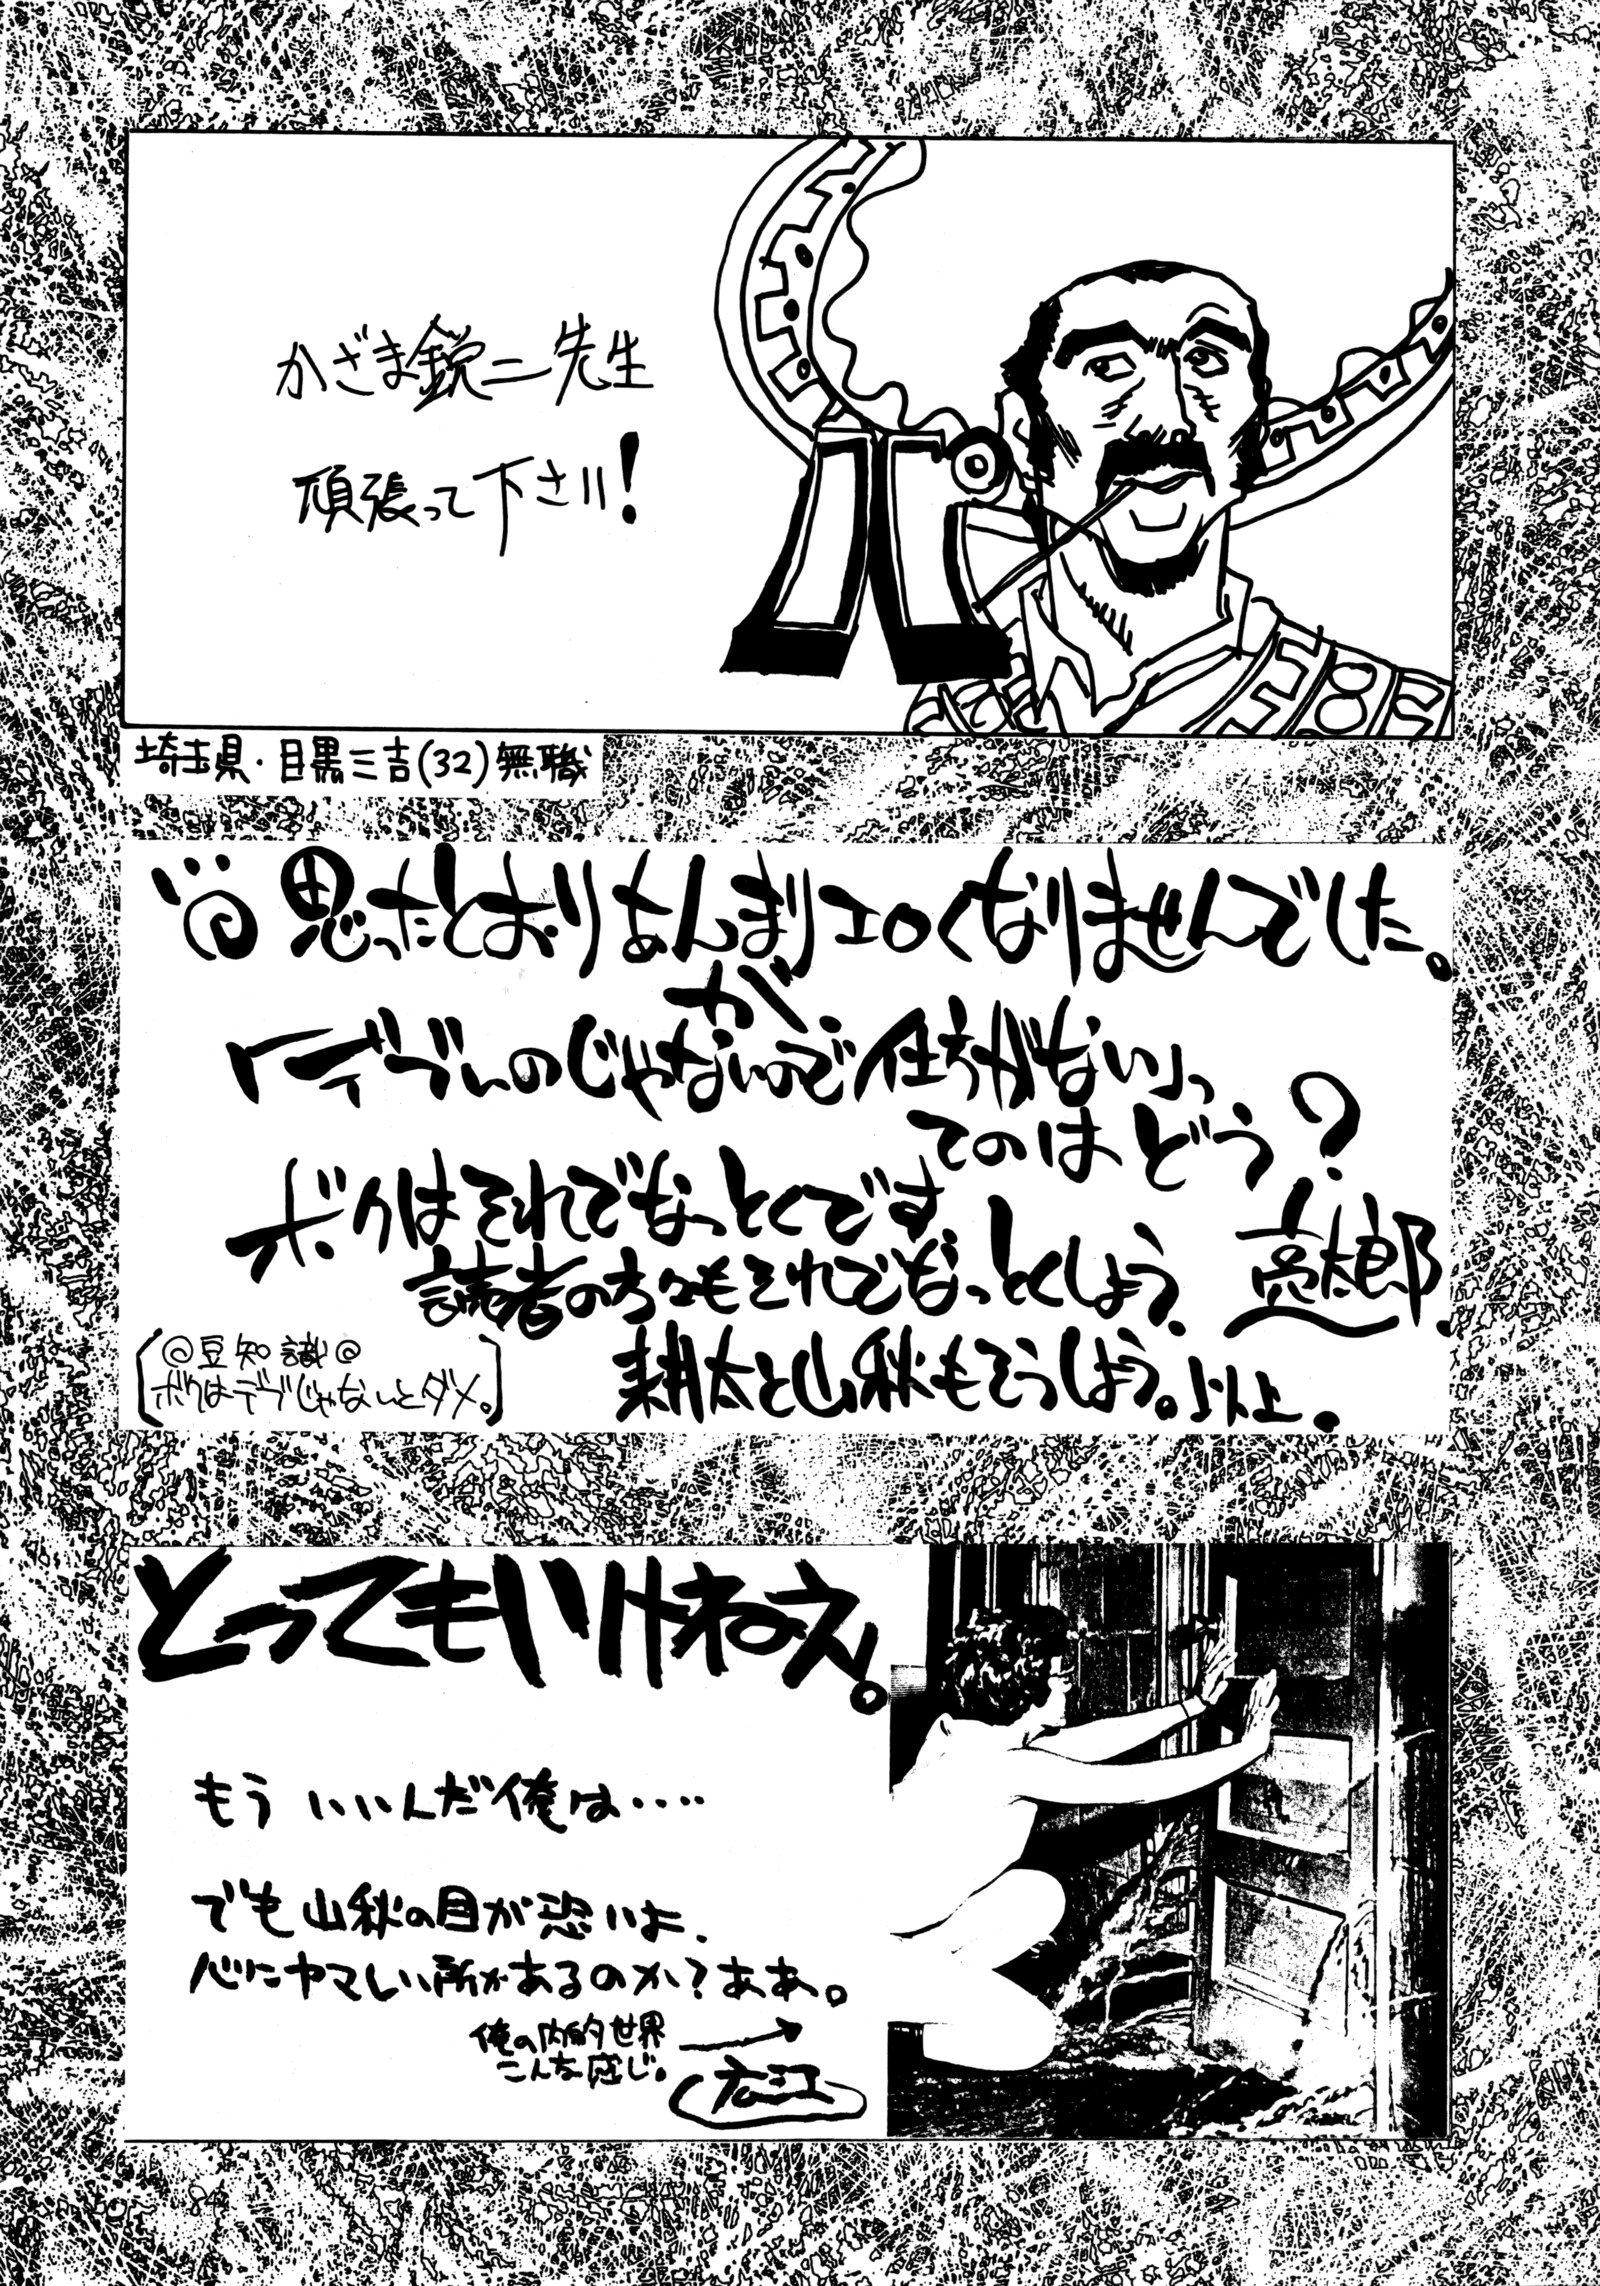 かざま鋭二先生
頑張って下さい!
埼玉県・目黒三吉(32)無職
思ったとおりあんまりエロくなりませんでした。
が
「デブいのじゃないので仕方がない」っ
てのはどう?
ボクはそれでなっとくです
読者の方々もそれでなっとくしよう.
亮太郎.
耕太と山秋もそうしよう。以上.
(@豆知識@
ボクはデブじゃないとダメ。)
とってもいけねえ。
もういいんだ俺は‥‥
でも山秋の目が恐いよ、
心にヤマしい所があるのか?ああ。
俺の内的世界
こんな感じ。
広江
84